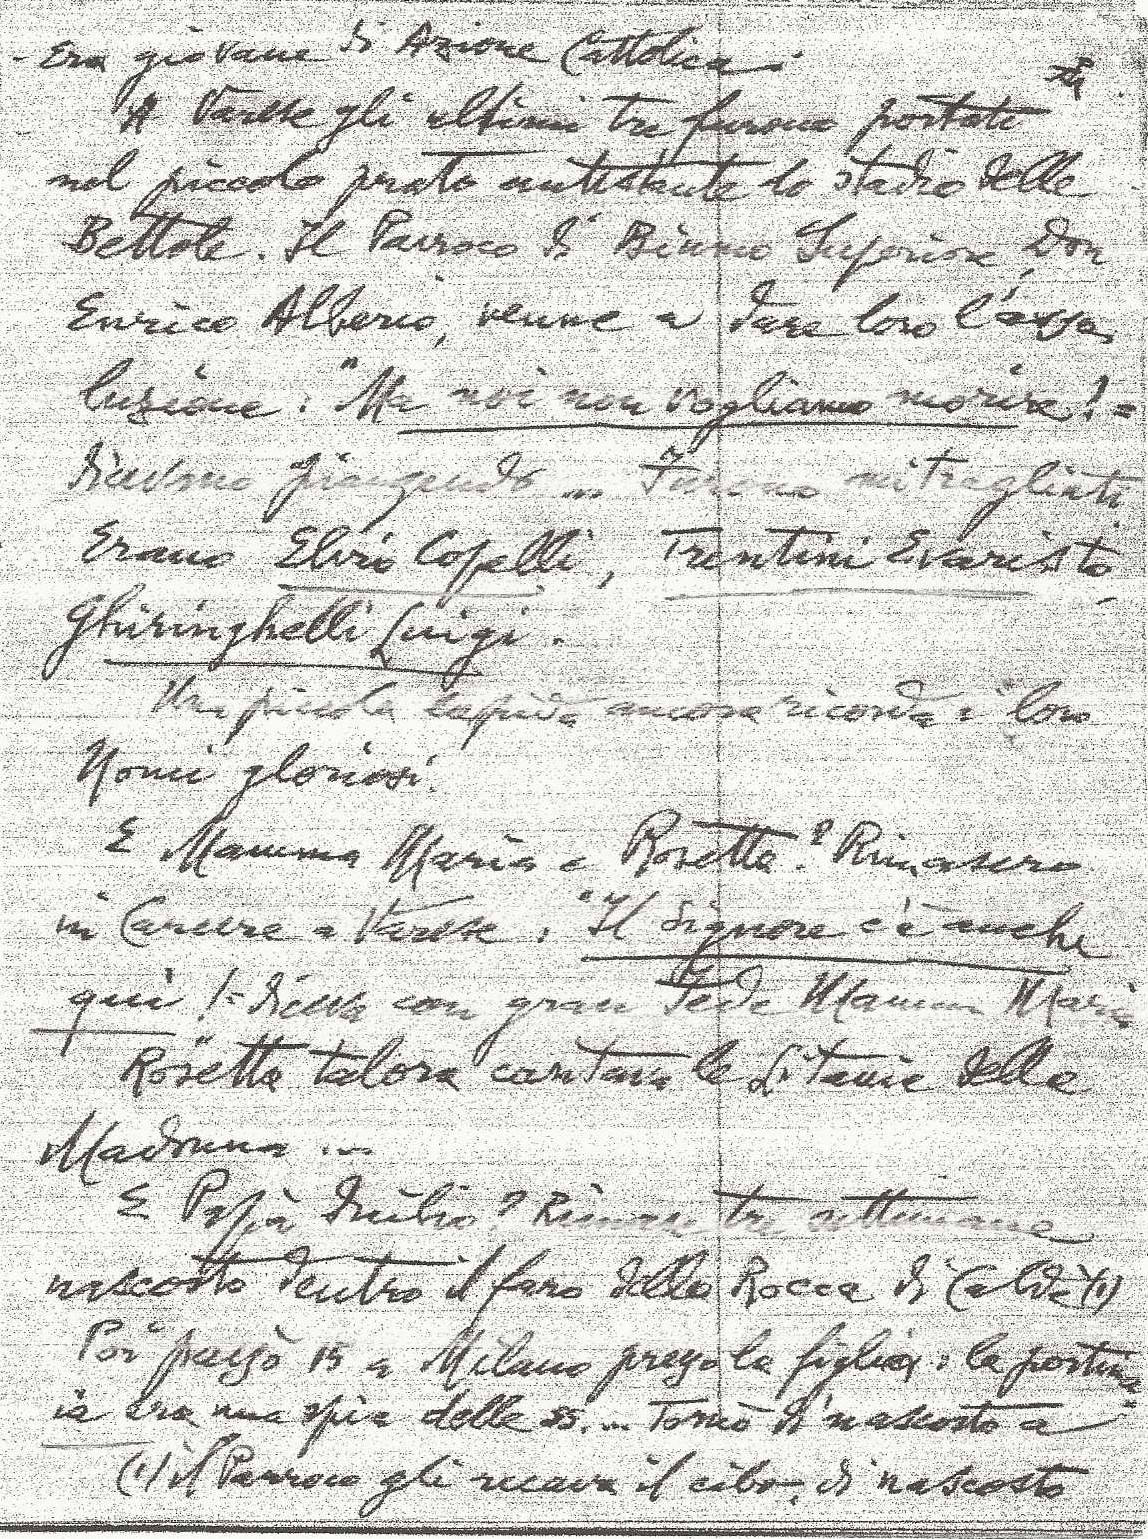 - Era giovane di Azione Cattolica.
A Varese gli ultimi tre furono portati
nel piccolo prato antistante lo stadio delle
Bettole. Il Parroco di Biumo Superiore, Don
Enrico Alberio, venne a dare loro l'asso
luzione: "Ma noi non vogliamo morire! =
dicevano piangendo ... Furono mitragliati
Erano Elvio Copelli, Trentini Evaristo,
Ghiringhelli Luigi.
Una piccola lapide ancora ricorda i loro
Nomi gloriosi.
E Mamma Maria e Rosetta? Rimasero
in Carcere a Varese: "Il Signore c'è anche
qui!- diceva con gran fede Mamma Maria
Rosetta talora cantava le Litanie della
Madonna ...
E Papà Duilio? Rimase tre settimane
nascosto dentro il faro della Rocca di Caldè (1)
Poi passò a Milano presso la figlia: la portina
ia era una spia delle SS... Tornò di nascosto a
(1) il Parroco gli recava il cibo, di nascosto